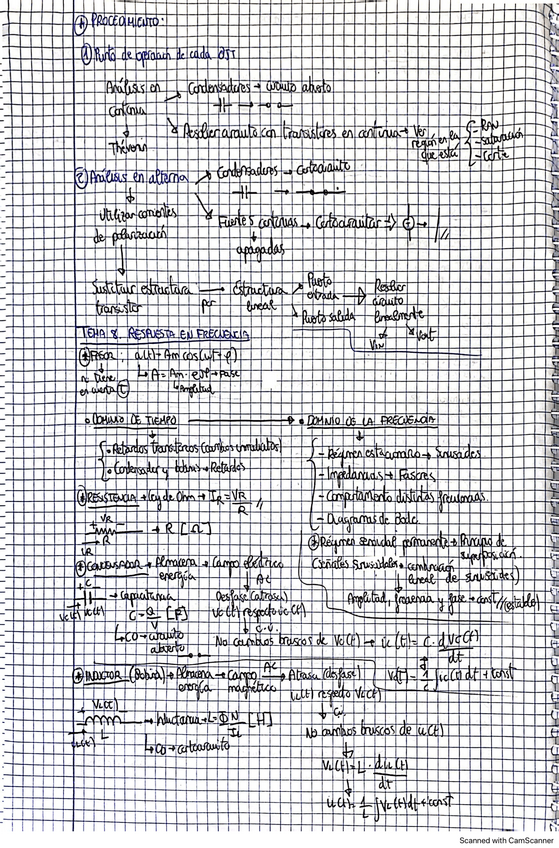 ④ PROCEDIMIENTO:
① Punto de operación de cada BJT
Análisis en continua → Condensadores → circuito abierto
Thévenin
Resolver circuito con transistores en continua → Ver región en la que está
- RAN
- saturación
- Corte
② Análisis en alterna → Condensadores → Cortocircuito
Utilizar corrientes de polarización
Fuentes continuas → Cortocircuitar →
apagadas
Sustituir estructura transistor → por Estructura lineal
Puerto entrada
Puerto salida
Resolver circuito linealmente
Vin
Vout
TEMA 8. RESPUESTA EN FRECUENCIA
FASOR: a(t) = Am cos(wt + φ)
no tiene en cuenta
↳ A = Am · e^jφ → Fase
↳ Amplitud
• DOMINIO DE TIEMPO → • DOMINIO DE LA FRECUENCIA
• Retardos transitorios (cambios inmediatos)
• Condensador y bobina → Retardos
- Régimen estacionario → Sinusoides
- Impedancias → Fasores
- Comportamiento distintas frecuencias.
- Diagramas de Bode.
RESISTENCIA → Ley de Ohm → IR = VR/R //
VR
→ R [Ω]
iR
R
Régimen senoidal permanente → Principio de superposición.
(señales sinusoidales → combinación lineal de sinusoides)
Amplitud, frecuencia y fase → const // (estable)
CONDENSADOR → Almacena energía → Campo eléctrico
+ C -
→ Capacitancia
C = Q/V [F]
↳ CO → circuito abierto
AC
Desfase (atrasa)
Vc(t) respecto ic(t)
C.U.
No cambios bruscos de Vc(t) → ic(t) = C · dVc(t)/dt
Vc(t) = 1/C ∫ ic(t) dt + const
INDUCTOR (Bobina) → Almacena energía → Campo magnético AC → Atrasa (desfase)
iL(t) respecto VL(t)
+ VL(t) -
→ Inductancia → L = ΦN/IL [H]
iL(t) L
↳ CO → cortocircuito
No cambios bruscos de iL(t)
VL(t) = L · diL(t)/dt
iL(t) = 1/L ∫ VL(t) dt + const
Scanned with CamScanner